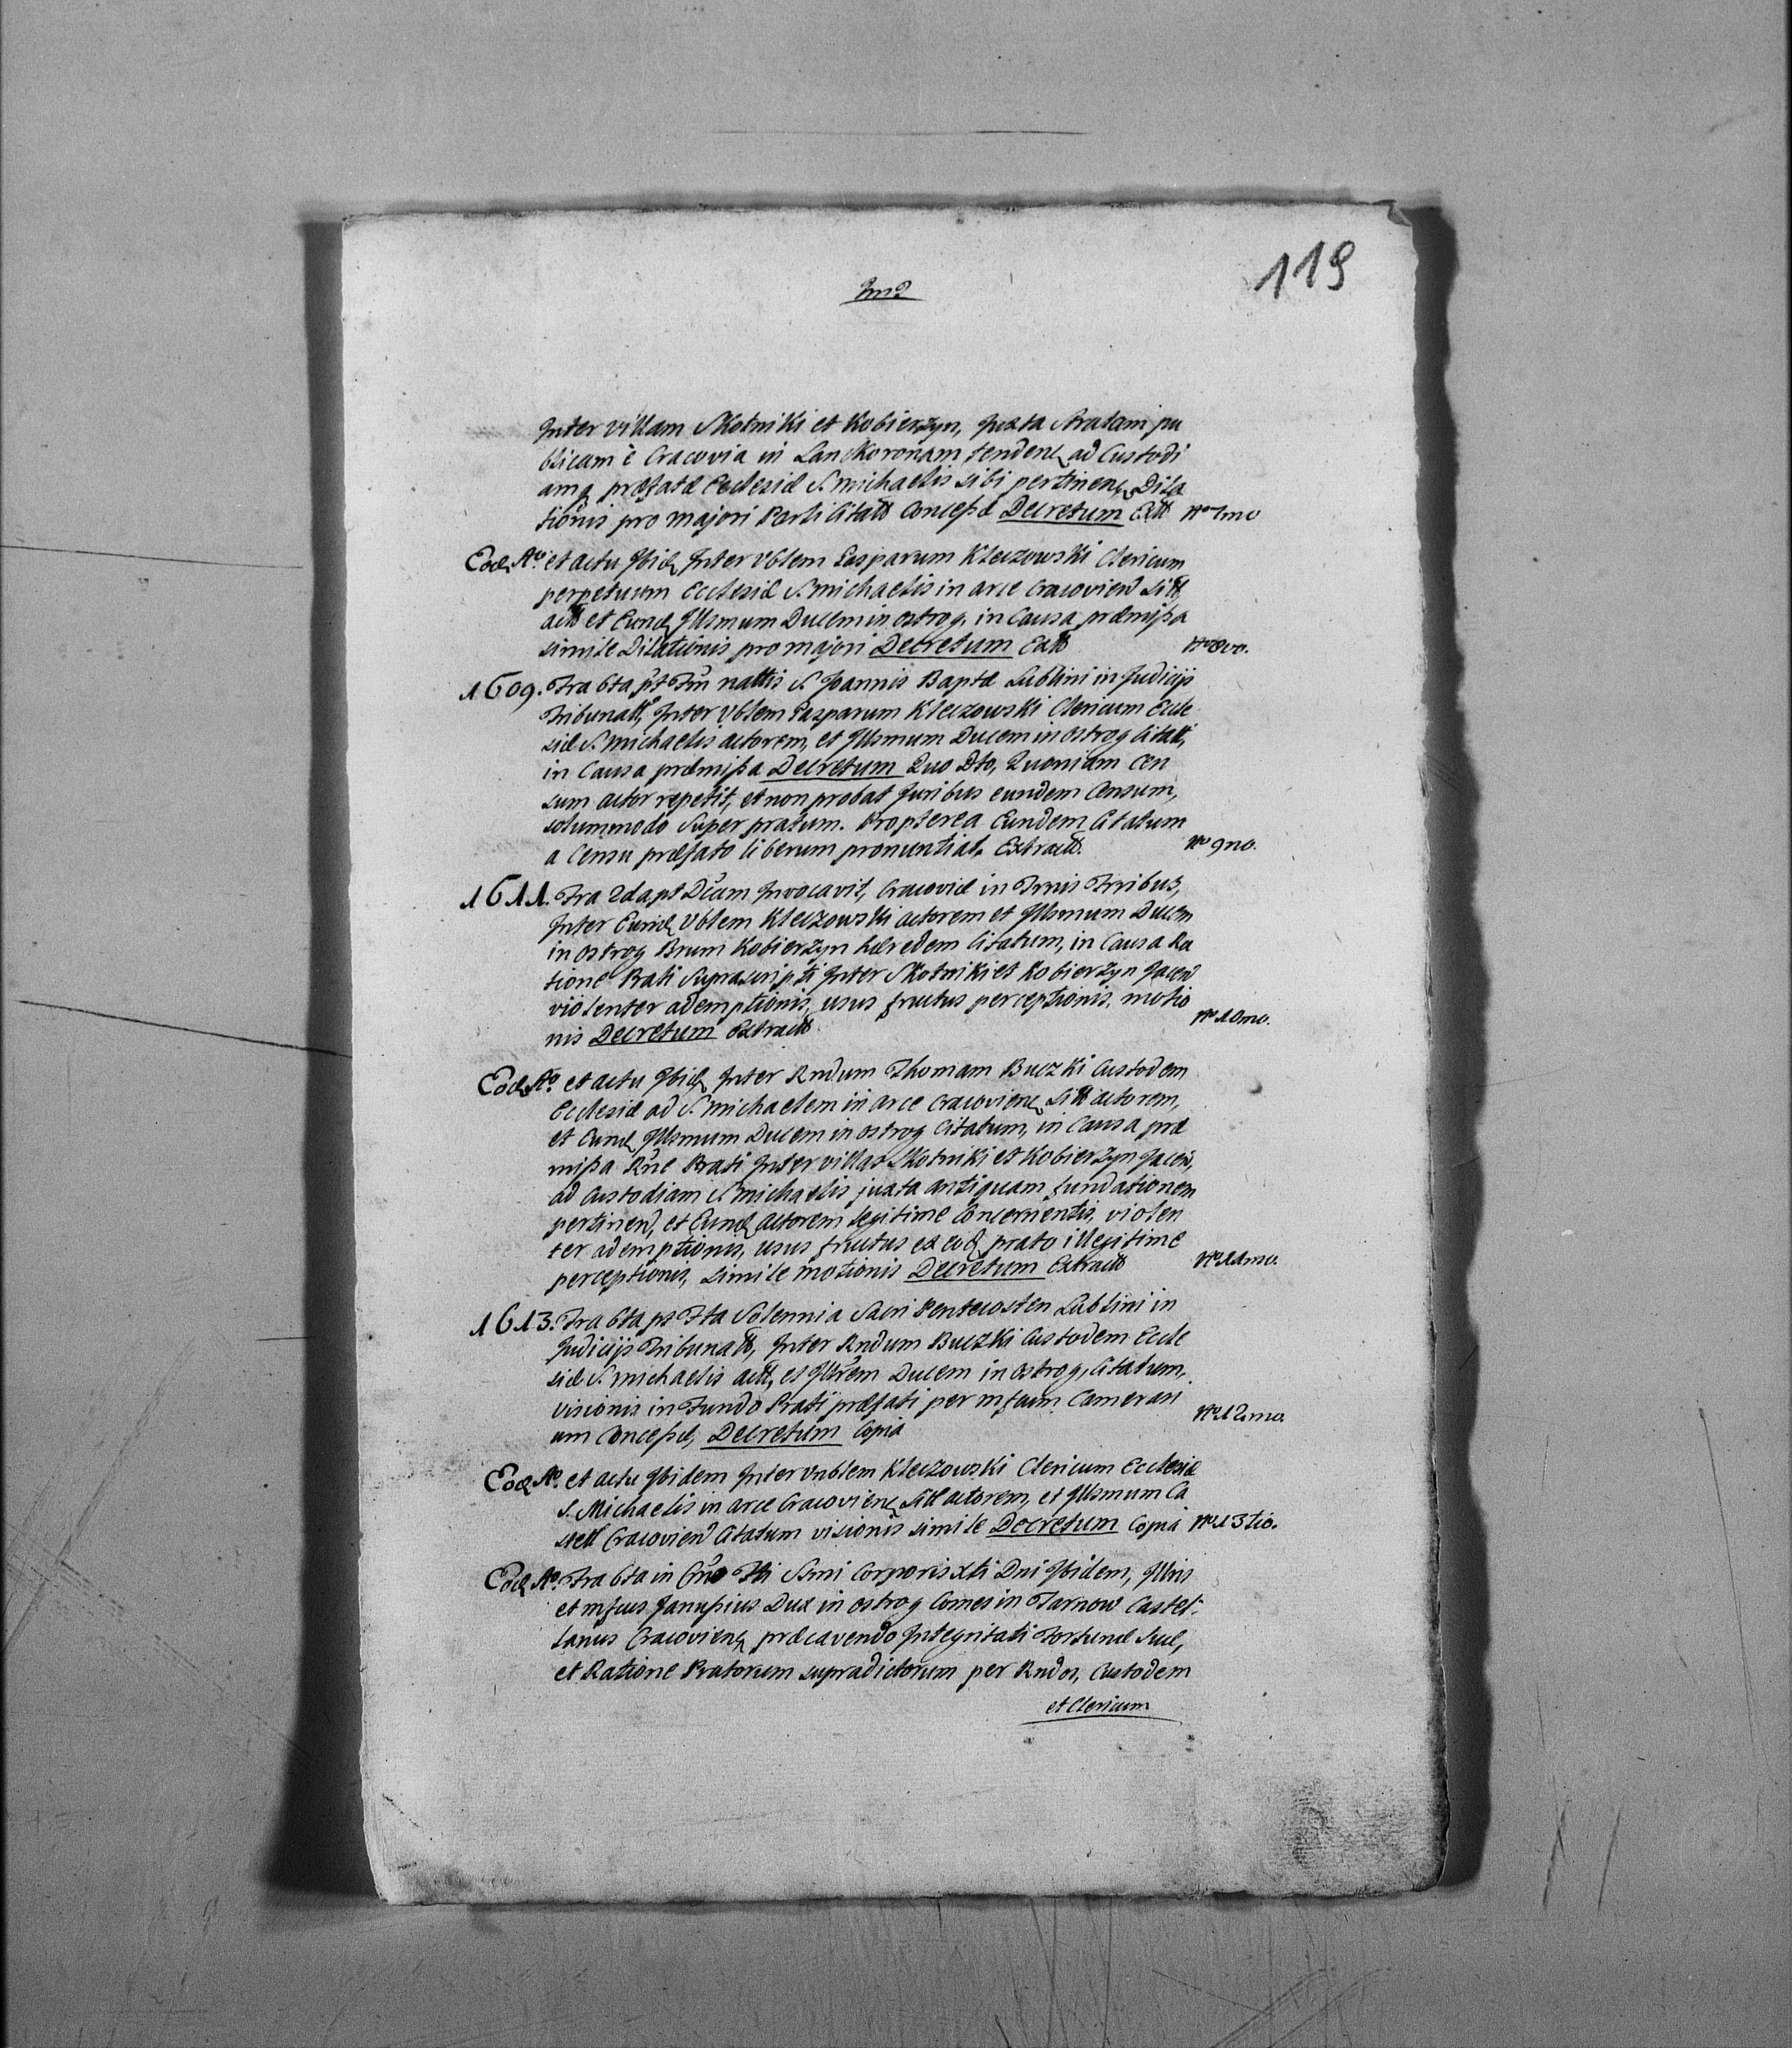 119
Inter villam Skotniki et Kobierzyn, juxta stratam pu
blicam è Cracovia in Lanckoronam tendenꝗ ad Custodi
amꝗ præfatæ Ecclesiæ S. Michaelis sibi pertinenꝗ Dila
tionis pro majori Parti Citatt Concessæ Decretum Extt Nro 7mo
Eodꝗ Ao. et actu Ibidꝗ Inter Vblem Gasparum Kleczowski Clericum
perpetuum Ecclesiæ S. Michaelis in arce Cracovien Sitt,
actt et Eundꝗ Illsmum Ducem in ostrog, in Causa præmissa
simile Dilationis pro majori Decretum Extt Nro 8vo.
1609. Fra 6ta pt Fm nattis S. Joannis Baptæ Lublini in Judicijs
Tribunatt, Inter Vblem Gasparum Kleczowski Clericum Eccle
siæ S. Michaelis actorem, et Illsmum Ducem in ostrog Citatt,
in Causa præmissa Decretum Quo Dto, Quoniam Cen
sum actor repetit, et non probat Juribus eundem Censum,
solummodo super pratum. Propterea Eundem Citatum
a Censu præfato liberum pronuntiat. Extractt. Nro 9no.
1611. Fra 2da pt Dcam Invocavit, Cracoviæ in Trnis Trribus,
Inter Eundꝗ Vblem Kleczowski actorem et Illsmum Ducem
in ostrog Bnum Kobierzyn hæredem Citatum, in Causa Ra
tione Prati suprascripti Inter Skotniki et Kobierzyn Jacen
violenter ademptionis, usus fructus perceptionis, motio
nis Decretum Extractt Nro 10mo.
Eodꝗ Ao. et actu Ibidꝗ Inter Rndum Thomam Buczki Custodem
Ecclesiæ ad S. Michaelem in arce Cracovienꝗ Sitt actorem,
et Eundꝗ Illsmum Ducem in ostrog Citatum, in Causa præ
missa Rne Prati Inter villas Skotniki et Kobierzyn Jacen,
ad Custodiam S. Michaelis juxta antiquam fundationem
pertinen, et Eundꝗ actorem legitime Concernentis, violen
ter ademptionis, usus fructus ex eodꝗ prato illegitime
perceptionis, simile motionis Decretum Extractt Nro 11mo.
1613. Fra 6ta pt Fta Solennia Sacri Pentecosten Lublini in
Judicijs Tribunatt, Inter Rndum Buczki Custodem Eccle
siæ S. Michaelis actt, et Illrem Ducem in ostrog, Citatum,
visionis in Fundo Prati præfati per mfcum Camerari
um Concessæ, Decretum Copia Nro 12mo.
Eodꝗ Ao. et actu Ibidem Inter Vnblem Kleczowski Clericum Ecclesiæ
S. Michaelis in arce Cracovienꝗ Sitt actorem, et Illsmum Ca
stell Cracovien Citatum visionis simile Decretum Copia Nro 13tio.
Eodꝗ Ao. Fra 6ta in Cro Fti Ssmi Corporis Xti Dni Ibidem, Illris
et mfcus Janussius Dux in ostrog Comes in Tarnow Castel-
lanus Cracovienꝗ præcavendo Integritati Fortunæ suæ,
et Ratione Pratorum supradictorum per Rndos, Custodem
et Clericum